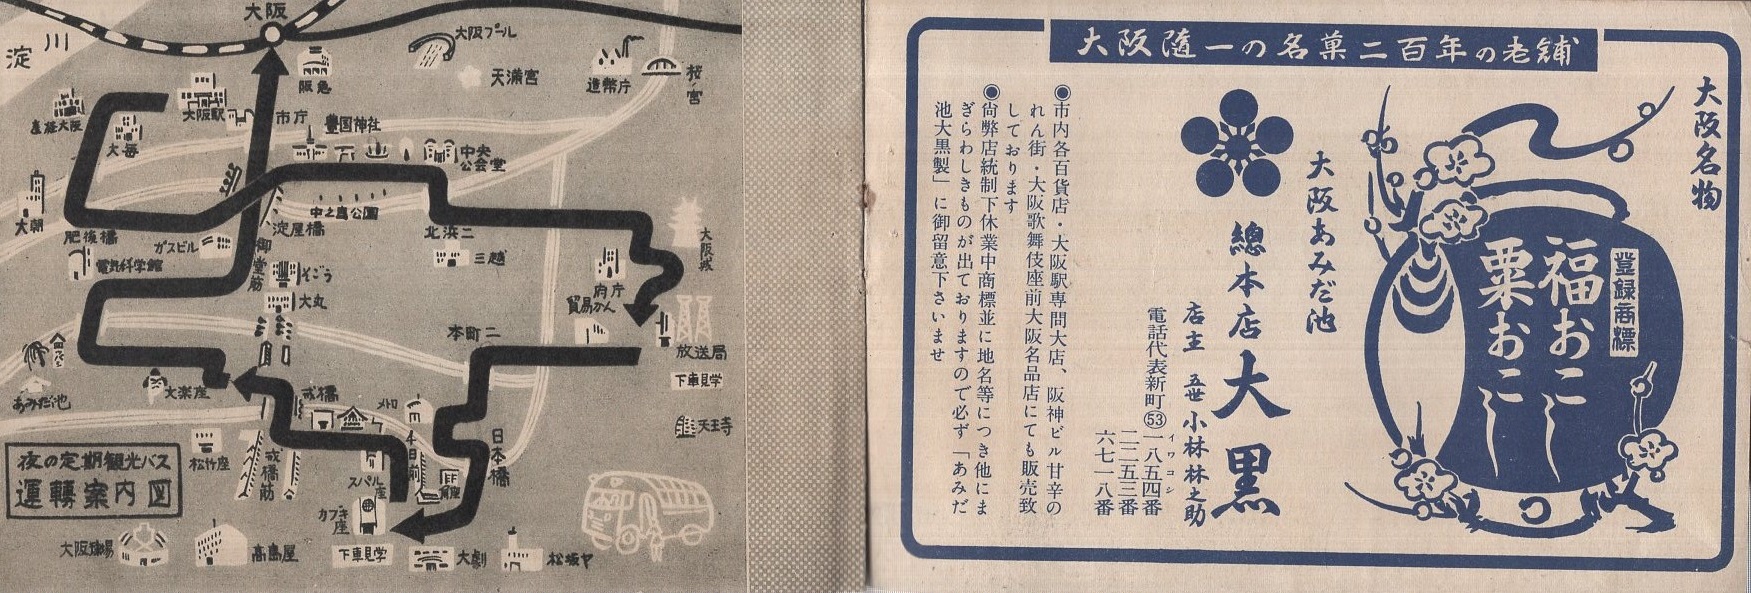 大阪
淀川
阪急
大阪プール
天満宮
造幣庁
桜ノ宮
産経大阪
大毎
大阪駅
市庁
豊国神社
中央公会堂
大朝
肥後橋
ガスビル
淀屋橋
中之島公園
北浜二
三越
大阪城
電気科学館
御堂筋
そごう
大丸
府庁
貿易かん
本町二
放送局
下車見学
あみだ池
文楽座
戎橋
メトロ
天王寺
松竹座
戎橋筋
スバル座
日本橋
カブキ座
夜の定期観光バス
運轉案内図
大阪球場
高島屋
下車見学
大劇
松坂ヤ
大阪随一の名菓二百年の老舗
大阪名物
登録商標
福おこし
粟おこし
大阪あみだ池
總本店大黒
店主 五世 小林林之助
電話代表新町53一八五四番
イワコシ
二二五三番
六七一八番
◉市内各百貨店・大阪駅専門大店、阪神ビル甘辛の
れん街・大阪歌舞伎座前大阪名品店にても販売致
しております
◉尚弊店統制下休業中商標並に地名等につき他にま
ぎらわしきものが出ておりますので必ず「あみだ
池大黒製」に御留意下さいませ